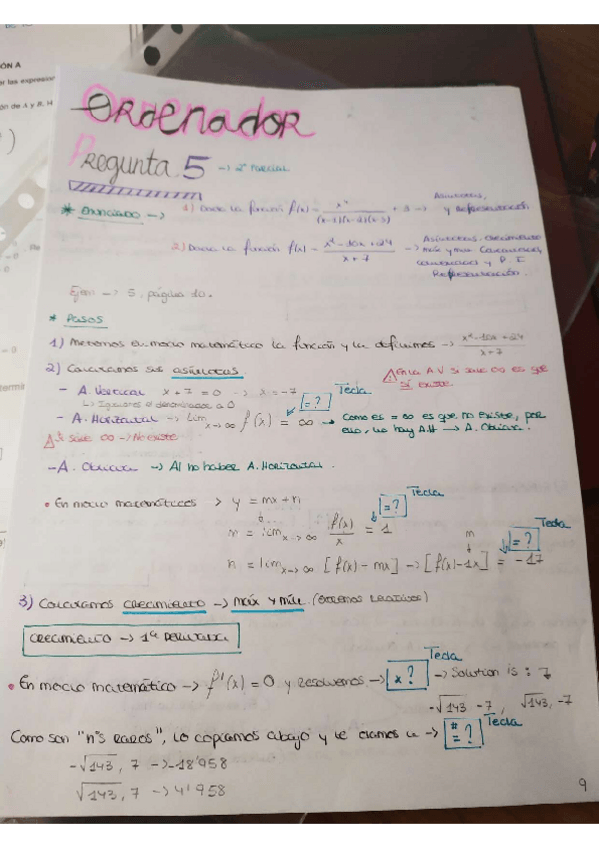 ÓN A
er las expresion
ón de A y B. H
Ordenador
Pregunta 5 → 2º Parcial
* Enunciado → 1) Dada la función f(x) = + 3 → Asíntotas, y Representación
2) Dada la función f(x) = x²-10x+24 / x+7 → Asíntotas, crecimiento
máx y mín
y P. I
Representación.
Ejem → 5, página 10.
* Pasos
1) Metemos en modo matemático la función y la definimos → x²-10x+24 / x+7
2) Calculamos sus asíntotas
⚠ En la A V si sale ∞ es que
sí existe.
- A. Vertical x + 7 = 0 → x = -7
↳ Igualamos el denominador a 0
Tecla
= ?
- A. Horizontal → lim x→∞ f(x) = ∞ → Como es = ∞ es que no existe, por
ello, no hay A.H → A. Oblicua.
⚠ Si sale ∞ → No existe
- A. Oblicua → Al no haber A. Horizontal.
• En modo matemáticas > y = mx + n
Tecla
= ?
m = lim x→∞ f(x)/x = 1
m
Tecla
= ?
n = lim x→∞ [f(x) - mx] → [f(x) - 1x] = -17
3) Calculamos crecimiento → máx y mín (extremos relativos)
Crecimiento → 1ª Derivada
Tecla
• En modo matemático → f'(x) = 0 y resolvemos → x ? → Solution is : 7
-√143 - 7 , √143, -7
Como son "nºs raros", lo copiamos abajo y le damos a → # = ? Tecla
-√143, 7 → -18'958
√143, 7 → 4'958
9